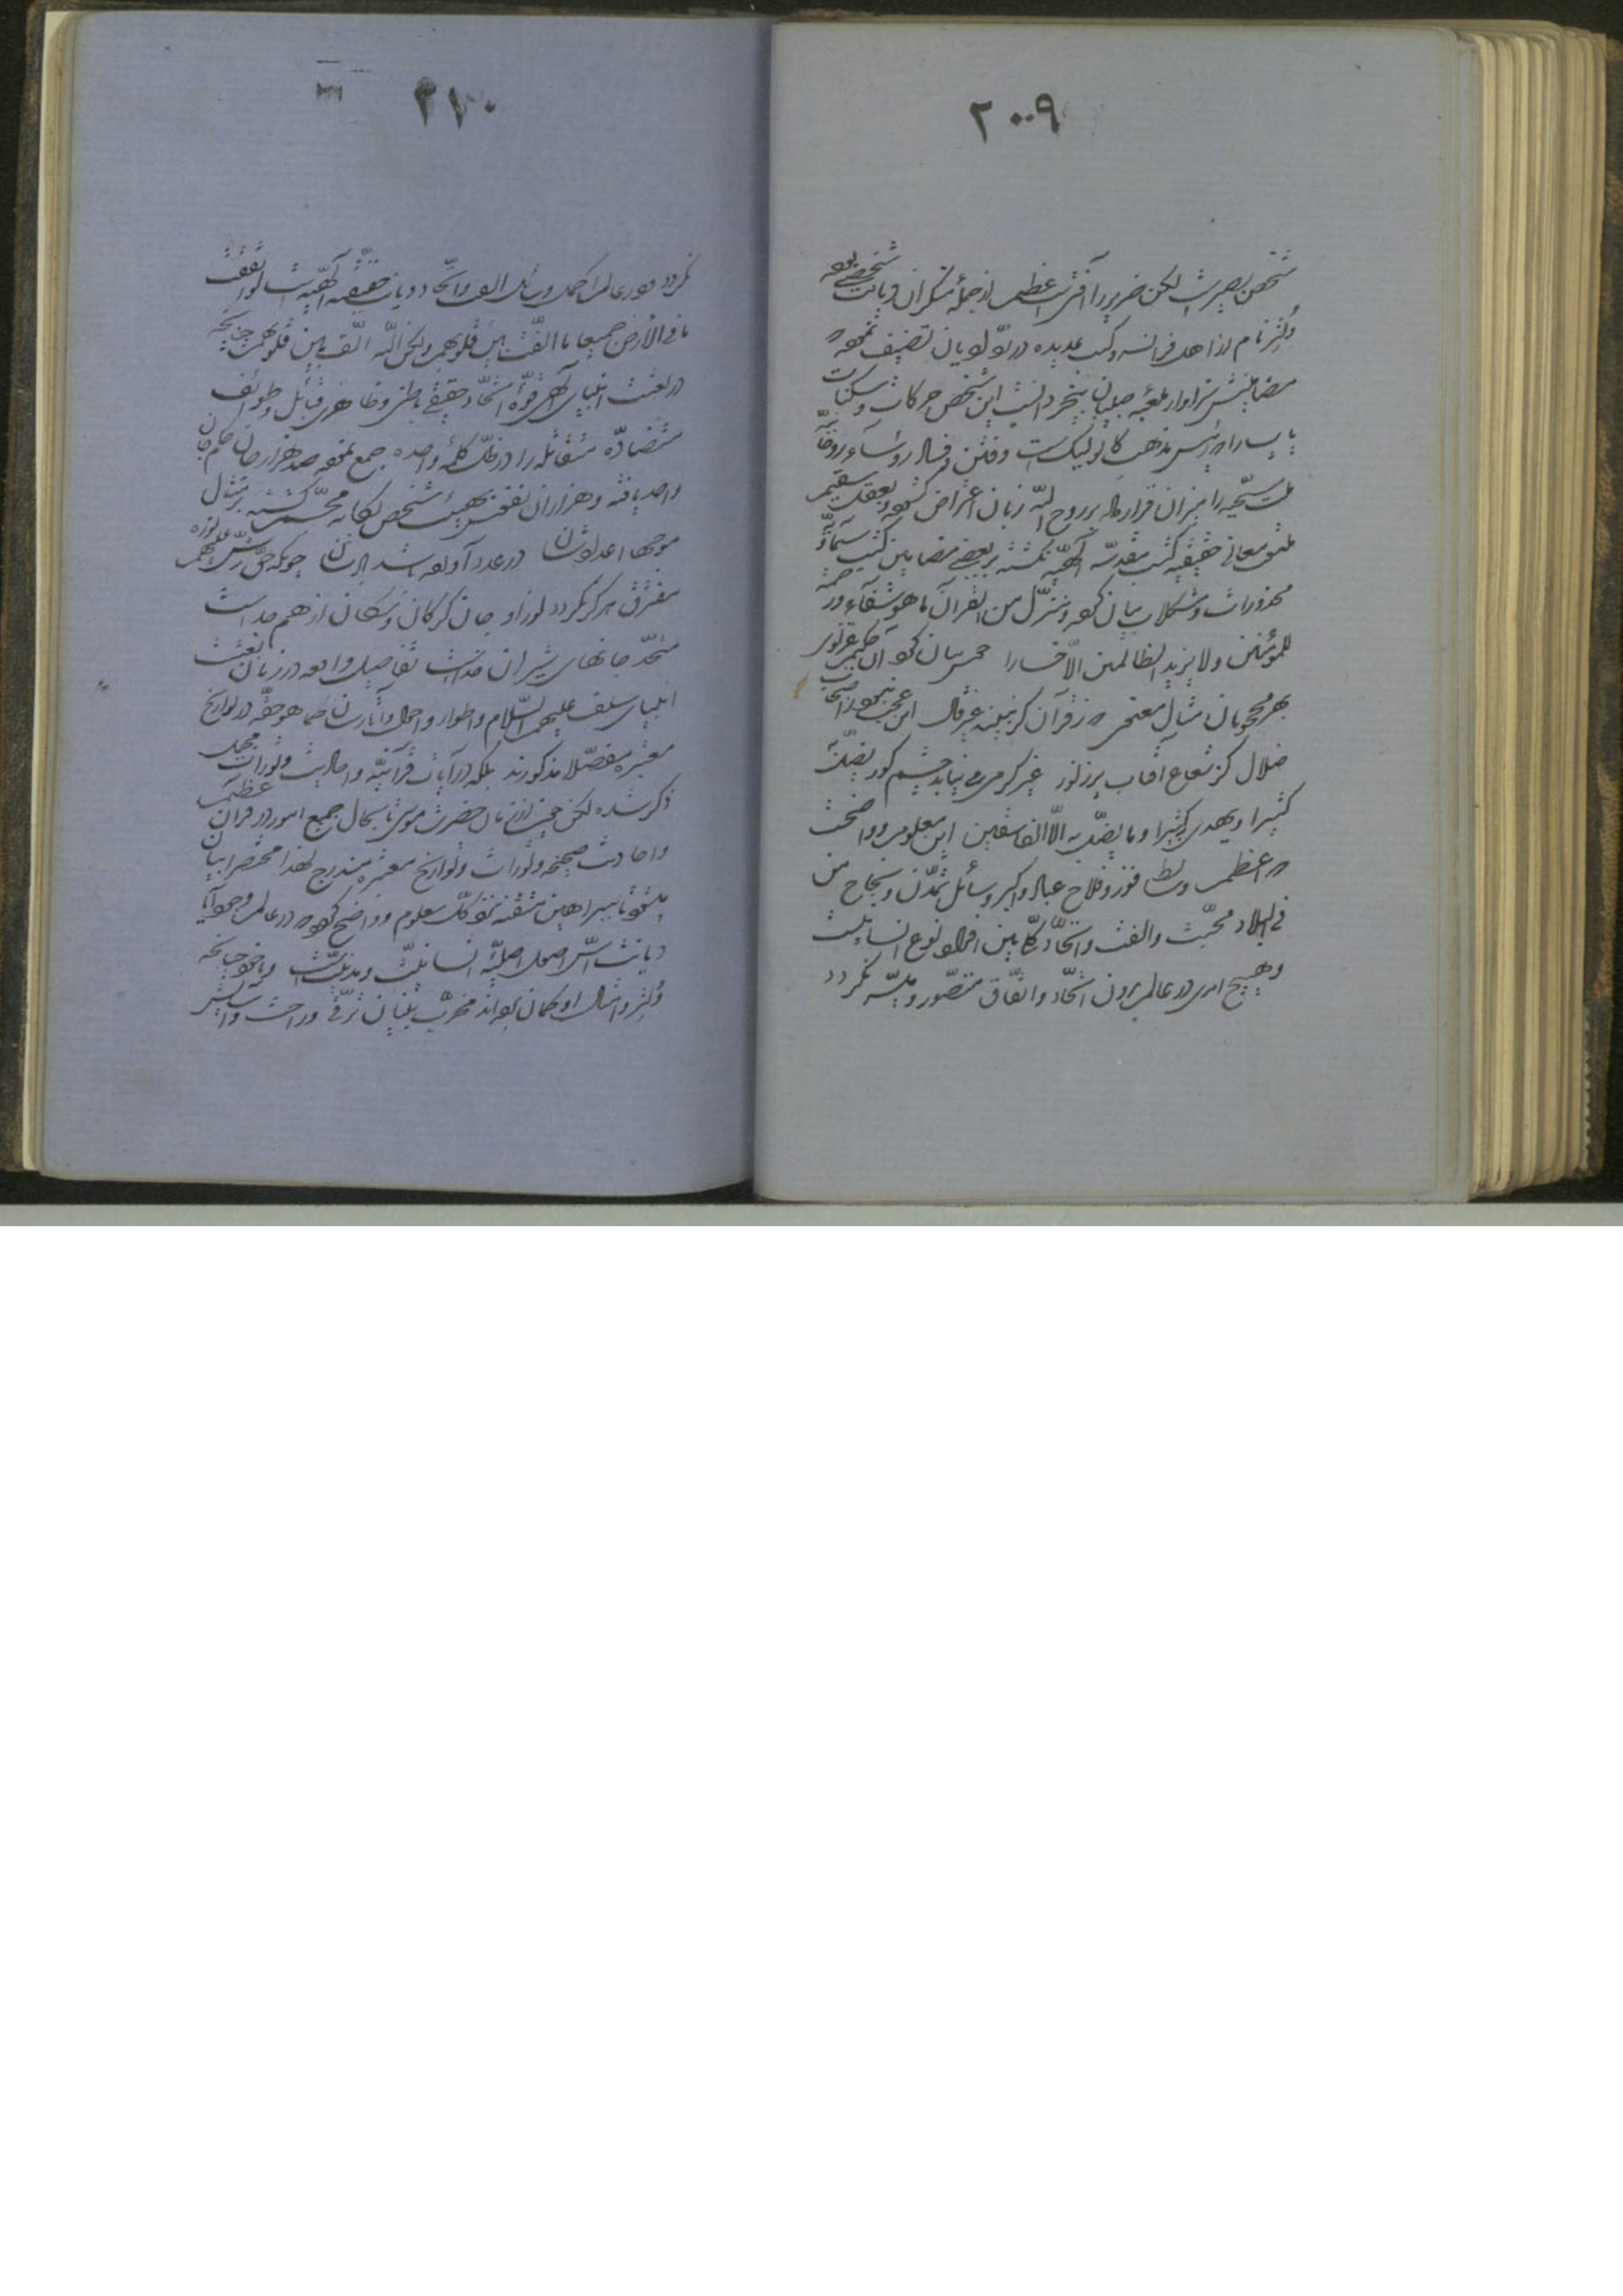 ٢٠٠٩
شخص بصیر است لکن ضریر را آفتی است عظیم از جمله منکران دیانت شخصی بوده
ولتر نام از اهل فرانسه و کتب عدیده در رد ادیان تصنیف نموده که
مضامینش سزاوار ملعبه صبیان بیخرد انست این شخص حرکات و سکنات
پاپ را که رئیس مذهب کاتولیک است و فتن و فساد رؤسای روحانیه
ملت مسیحیه را میزان قرار داده بر روح الله زبان اعتراض گشوده و بعقل سقیم
ملتفت معانی حقیقیه کتب مقدسه الهیه نگشته بر بعضی مضامین کتب سماویه
محذورات و مشکلات بیان کرده و ننزل من القرآن ما هو شفاء و رحمة
للمؤمنین و لا یزید الظالمین الا خسارا خوش بیان کرد آن حکیم غزنوی
بهر محجوبان مثال معنوی که ز قرآن گر نبیند غیر قال این عجب نبود ز اصحاب
ضلال کز شعاع آفتاب پر ز نور غیر گرمی می نیابد چشم کور یضل به
کثیرا و یهدی به کثیرا و ما یضل به الا الفاسقین این معلوم و واضحست
که اعظم وسائط فوز و فلاح عباد و اکبر وسائل تمدن و نجاح من
فی البلاد محبت و الفت و اتحاد کلی بین افراد نوع انسانیست
و هیچ امری در عالم بدون اتحاد و اتفاق متصور و میسر نگردد
٢١٠
نگردد و در عالم اکمل وسائل الفت و اتحاد دیانت حقیقیه الهیه است لو انفقت
ما فی الأرض جمیعا ما الفت بین قلوبهم و لکن الله الف بین قلوبهم چنانچه
در بعثت انبیای الهی قوه اتحاد حقیقی باطنی و ظاهری قبائل و طوائف
متضاده متقاتله را در ظل کلمه واحده جمع نموده صد هزار جان حکم جان
واحد یافته و هزاران نفوس بهیئت شخص یگانه مجسم گشته بر مثال
موجها اعدادشان در عدد آورده باشد بادشان چونکه حق رش علیهم نوره
مفترق هرگز نگردد نور او جان گرگان و سگان از هم جداست
متحد جانهای شیران خداست تفاصیل واقعه در زمان بعثت
انبیای سلف علیهم السلام و اطوار و احوال و آثارشان کما هو حقه در تواریخ
معتبره مفصلا مذکور نه بلکه در آیات قرآنیه و احادیث و تورات مجمل
ذکر شده لکن چون از زمان حضرت موسی تا بحال جمیع امور در قرآن عظیم
و احادیث صحیحه و تورات و تواریخ معتبره مندرج لهذا مختصرا بیان
میشود تا ببراهین متقنه نزد کل معلوم و واضح گردد که در عالم وجود آیا
دیانت اس اصول اصلیه انسانیت و مدنیتست و یا خود چنانچه
ولتر و امثال او گمان برده‌اند مخرب بنیان ترقی و راحت و آسایش